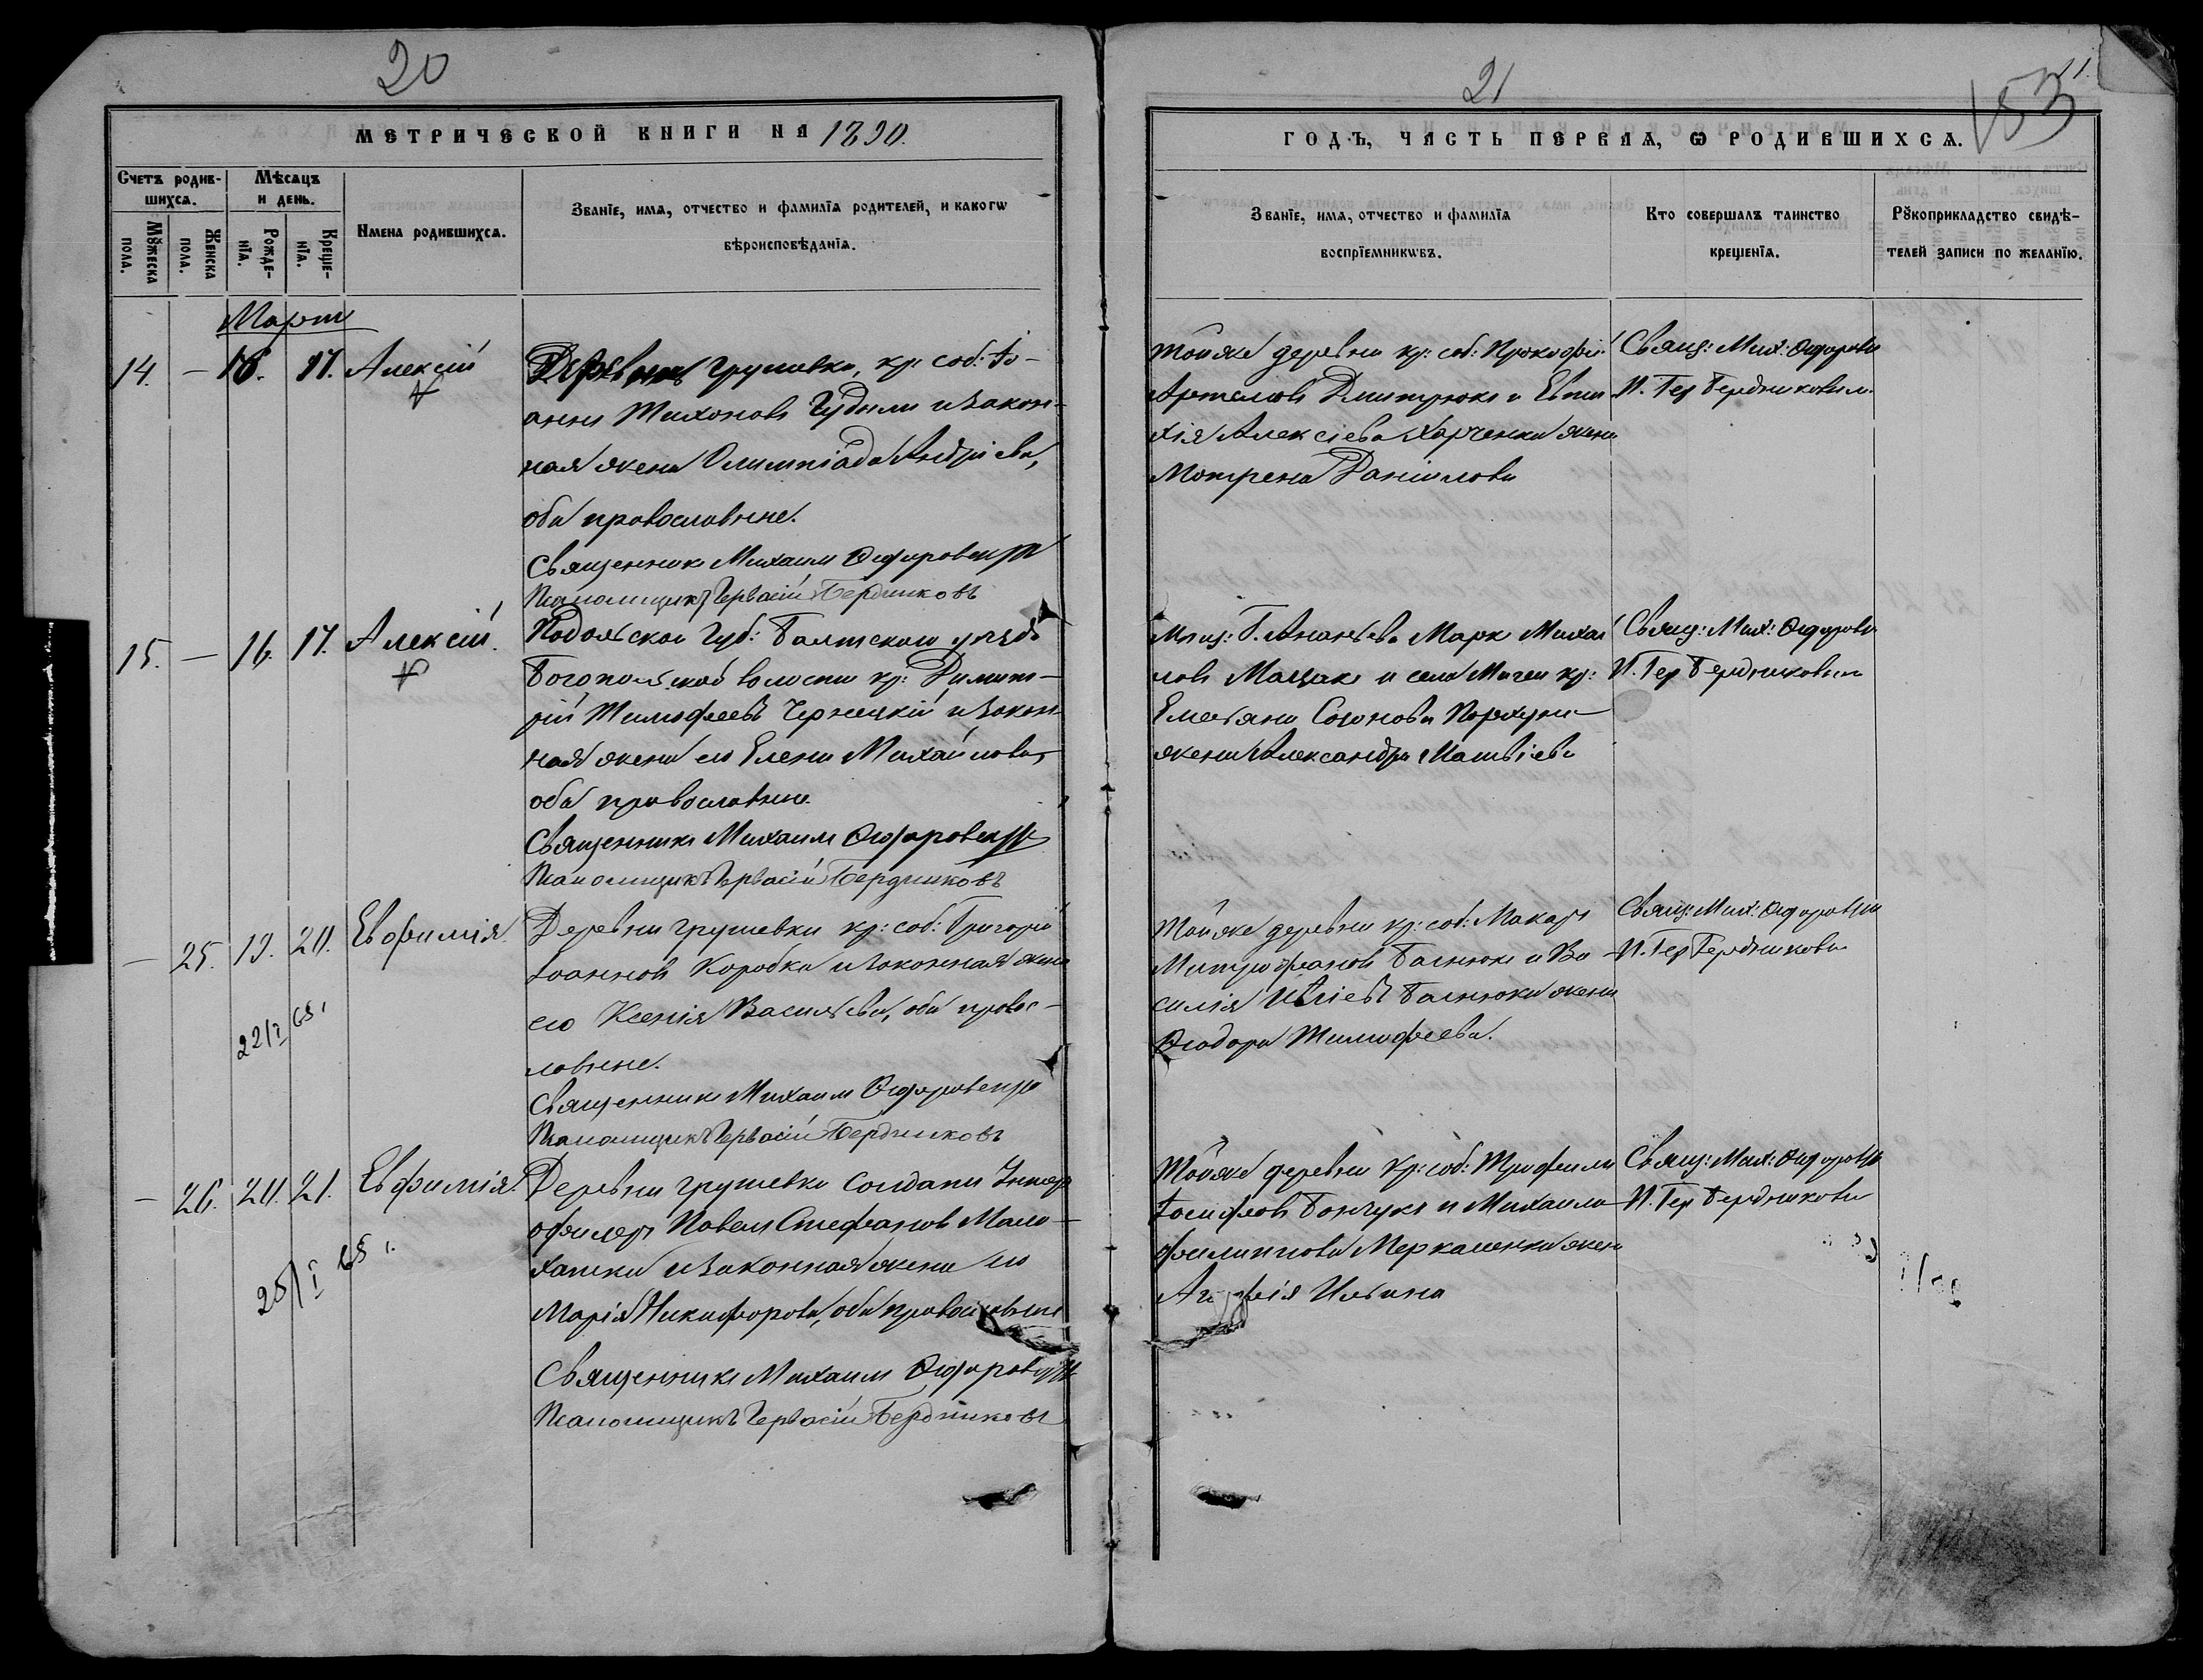 20
МЕТРИЧЕСКОЙ КНИГИ НА 1890.
Счетъ родив-
шихся.
Мѣсяцъ
и день.
Мꙋжеска
пола.
Женска
пола.
Рожде-
нїя.
Креще-
нїя.
Имена родившихся.
Званїе, имя, отчество и фамилїя родителей, и какогѡ
вѣроисповѣданїя.
Мартъ
14. — 16. 17. Алексій
Деревни Грушевки, кр: соб: Іо-
аннъ Тихоновъ и закон-
ная жена Олимпіада Андріева,
оба православные.
Священникъ Михаилъ Ѳедоровичъ
Псаломщикъ Гервасій Бердниковъ
15. — 16. 17. Алексій.
Подольской Губ: Балтскаго уѣзда
Богопольской волости кр: Димит-
рій Тимофеевъ Чернецкій и закон-
ная жена его Елена Михайлова,
оба православные.
Священникъ Михаилъ Ѳедоровичъ
Псаломщикъ Гервасій Бердниковъ
— 25. 19. 20. Евфимія.
Деревни Грушевки кр: соб: Григорій
Іоанновъ Коробка и законная жена
его Ксенія Васильева, оба правос-
лавные.
Священникъ Михаилъ Ѳедоровичъ
Псаломщикъ Гервасій Бердниковъ
22/I 65 г.
— 26. 20. 21. Евфимія.
Деревни Грушевки Солдатъ Унтеръ
офицеръ Павелъ Стефановъ Мало-
и законная жена его
Марія Никифорова, оба православные
Священникъ Михаилъ Ѳедоровичъ
Псаломщикъ Гервасій Бердниковъ
25/I 65 г.
21
153
ГОДЪ, ЧАСТЬ ПЕРВАЯ, Ѡ РОДИВШИХСЯ.
Званїе, имя, отчество и фамилїя
воспрїемникѡвъ.
Кто совершалъ таинство
крещенїя.
Рꙋкоприкладство свидѣ-
телей записи по желанїю.
Тойже деревни кр: соб: Прокофій
Дмитрюкъ и Евти-
хія Алексіева Харченка жена
Мотрена Даніилова
Свящ: Мих: Ѳедорови
П. Гер Бердниковъ
Мѣщ: Г. Ананьева Маркъ Михаи
ловъ и села Мигеи кр:
Емельяна Созонова
жена Александра Матвіева
Свящ: Мих: Ѳедорови
П. Гер Бердниковъ
Тойже деревни кр: соб: Макаръ
Митрофановъ Багнюкъ и Ва-
силія Иліева Багнюка жена
Ѳеодора Тимофеева.
Свящ: Мих: Ѳедорович
П. Гер Бердниковъ
Тойже деревни кр: соб: Трофимъ
Іосифовъ Бончукъ и Михаила
Филиппова Меркаленка жена
Агафія Ильина
Свящ: Мих: Ѳедорович
П. Гер Бердниковъ